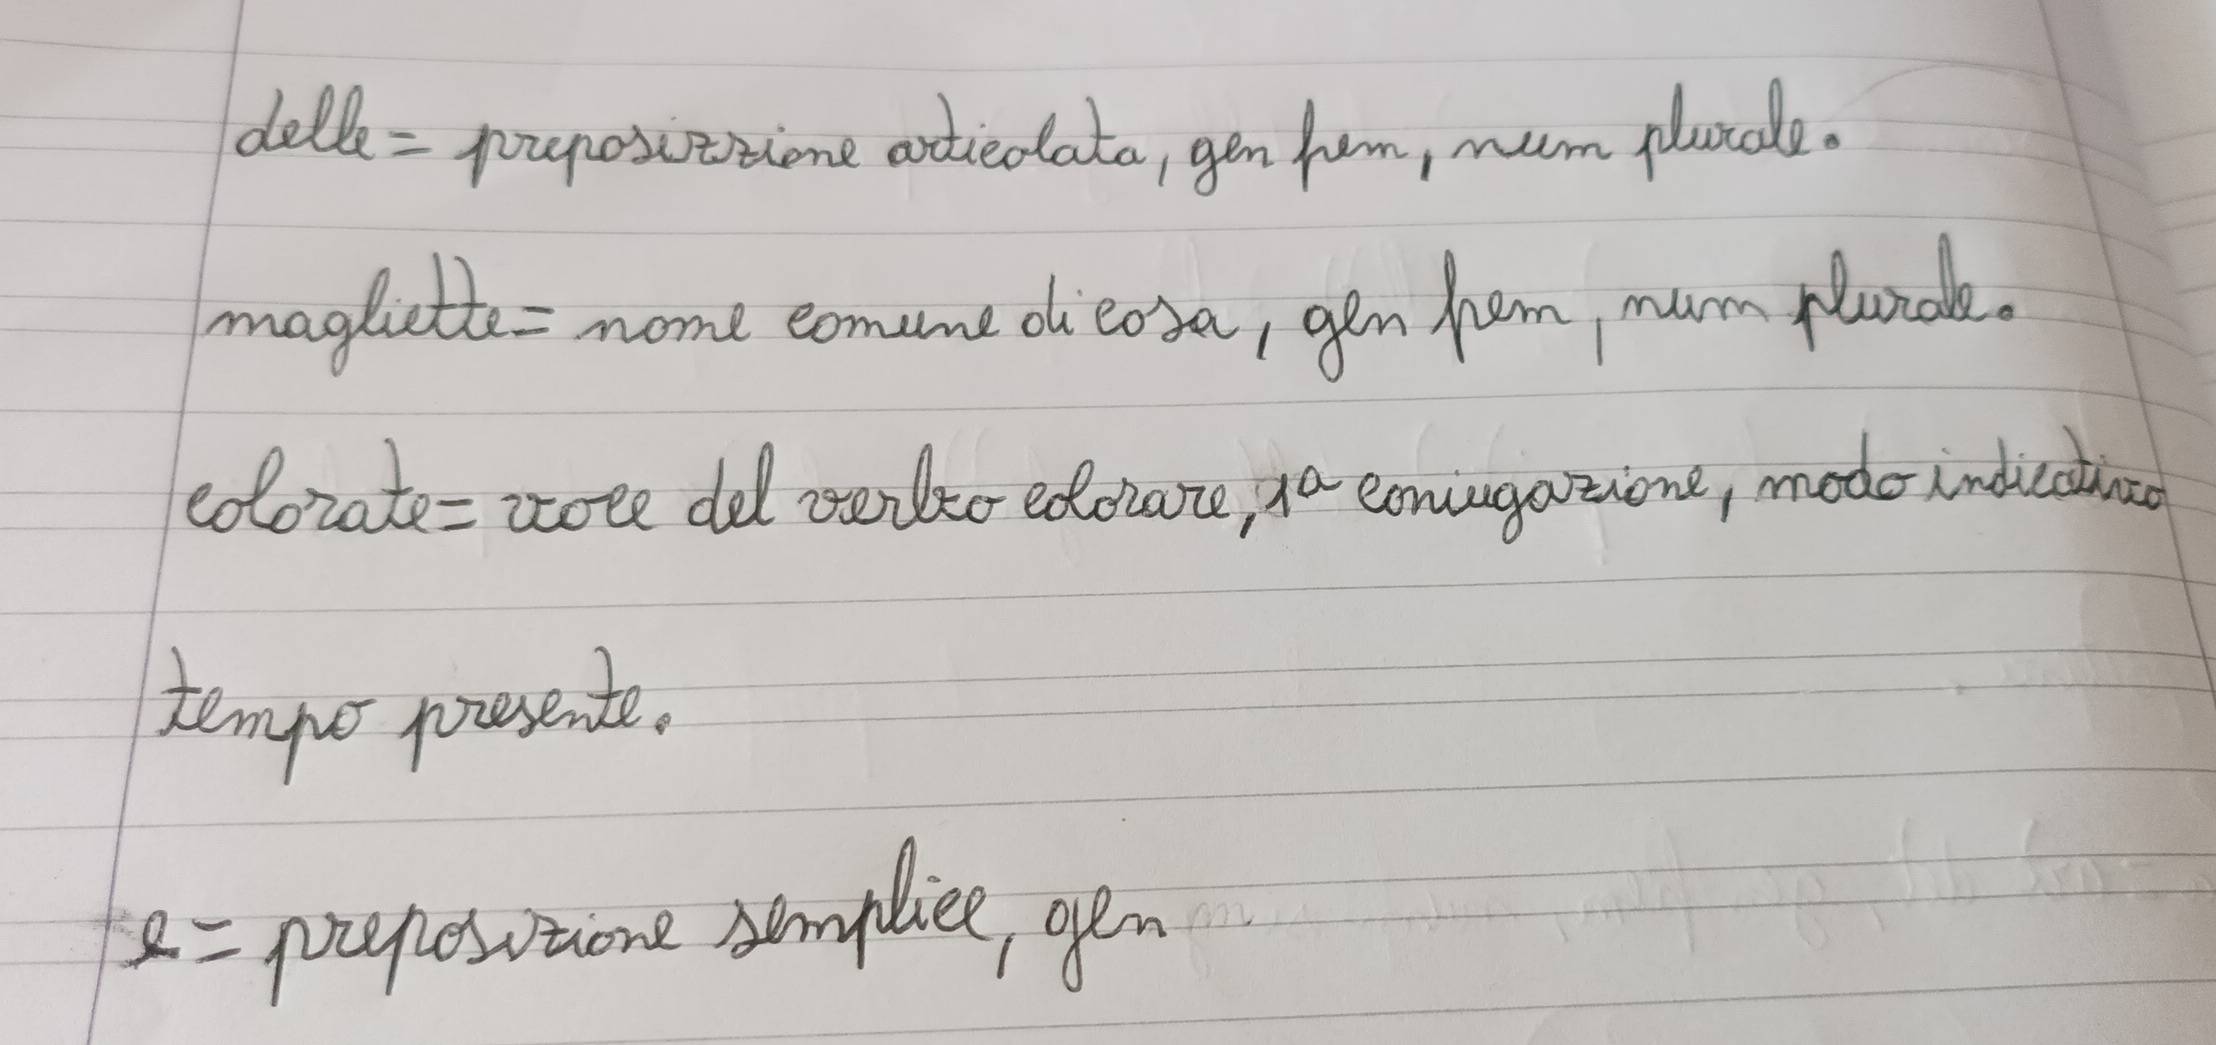 delle = preposizzione articolata, gen fem, num plurale.
magliette = nome comune di cosa, gen fem, num plurale.
colorate = voce del verbo colorare, 1a coniugazione, modo indicativo
tempo presente.
e = preposizione semplice, gen